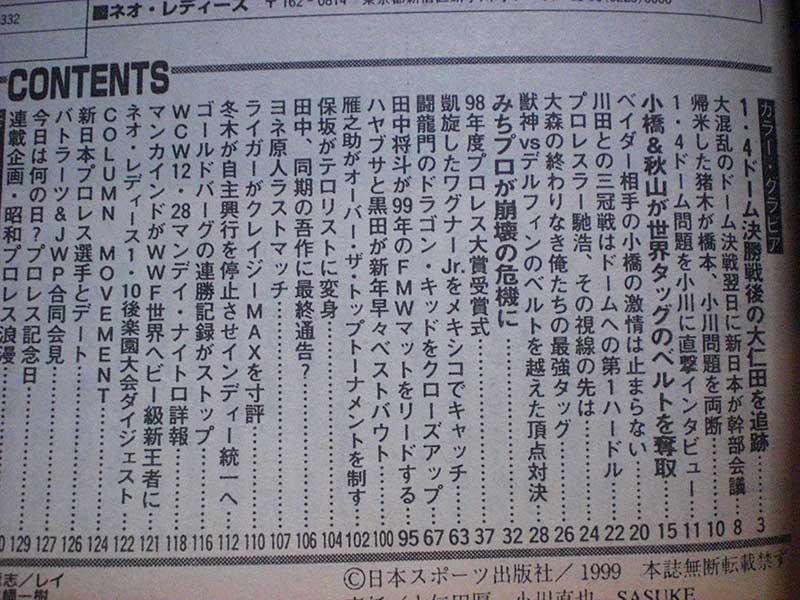 332
■ネオ・レディース
〒162-0814
CONTENTS
カラー・グラビア
1・4ドーム決勝戦後の大仁田を追跡……3
大混乱のドーム決戦翌日に新日本が幹部会議……8
帰米した猪木が橋本、小川問題を両断……10
1・4ドーム問題を小川に直撃インタビュー……11
小橋&秋山が世界タッグのベルトを奪取……15
ベイダー相手の小橋の激情は止まらない……20
川田との三冠戦はドームへの第1ハードル……22
プロレスラー馳浩、その視線の先は……24
大森の終わりなき俺たちの最強タッグ……26
獣神vsデルフィンのベルトを越えた頂点対決……28
みちプロが崩壊の危機に……32
98年度プロレス大賞受賞式……37
凱旋したワグナーJr.をメキシコでキャッチ……63
闘龍門のドラゴン・キッドをクローズアップ……67
田中将斗が99年のFMWマットをリードする……95
ハヤブサと黒田が新年早々ベストバウト……100
雁之助がオーバー・ザ・トップトーナメントを制す……102
保坂がテロリストに変身……104
田中、同期の吾作に最終通告?……106
ヨネ原人ラストマッチ……107
ライガーがクレイジーMAXを寸評……110
冬木が自主興行を停止させインディー統一へ……112
ゴールドバーグの連勝記録がストップ……116
WCW12・28マンデイ・ナイトロ詳報……118
マンカインドがWWF世界ヘビー級新王者に……121
ネオ・レディース1・10後楽園大会ダイジェスト……122
COLUMN MOVEMENT……124
新日本プロレス選手とデート……126
バトラーツ&JWP合同会見……127
今日は何の日?プロレス記念日……129
連載企画・昭和プロレス浪漫……
©日本スポーツ出版社/1999 本誌無断転載禁ず
志/レイ
一樹
大仁田厚、小川直也、SASUKE